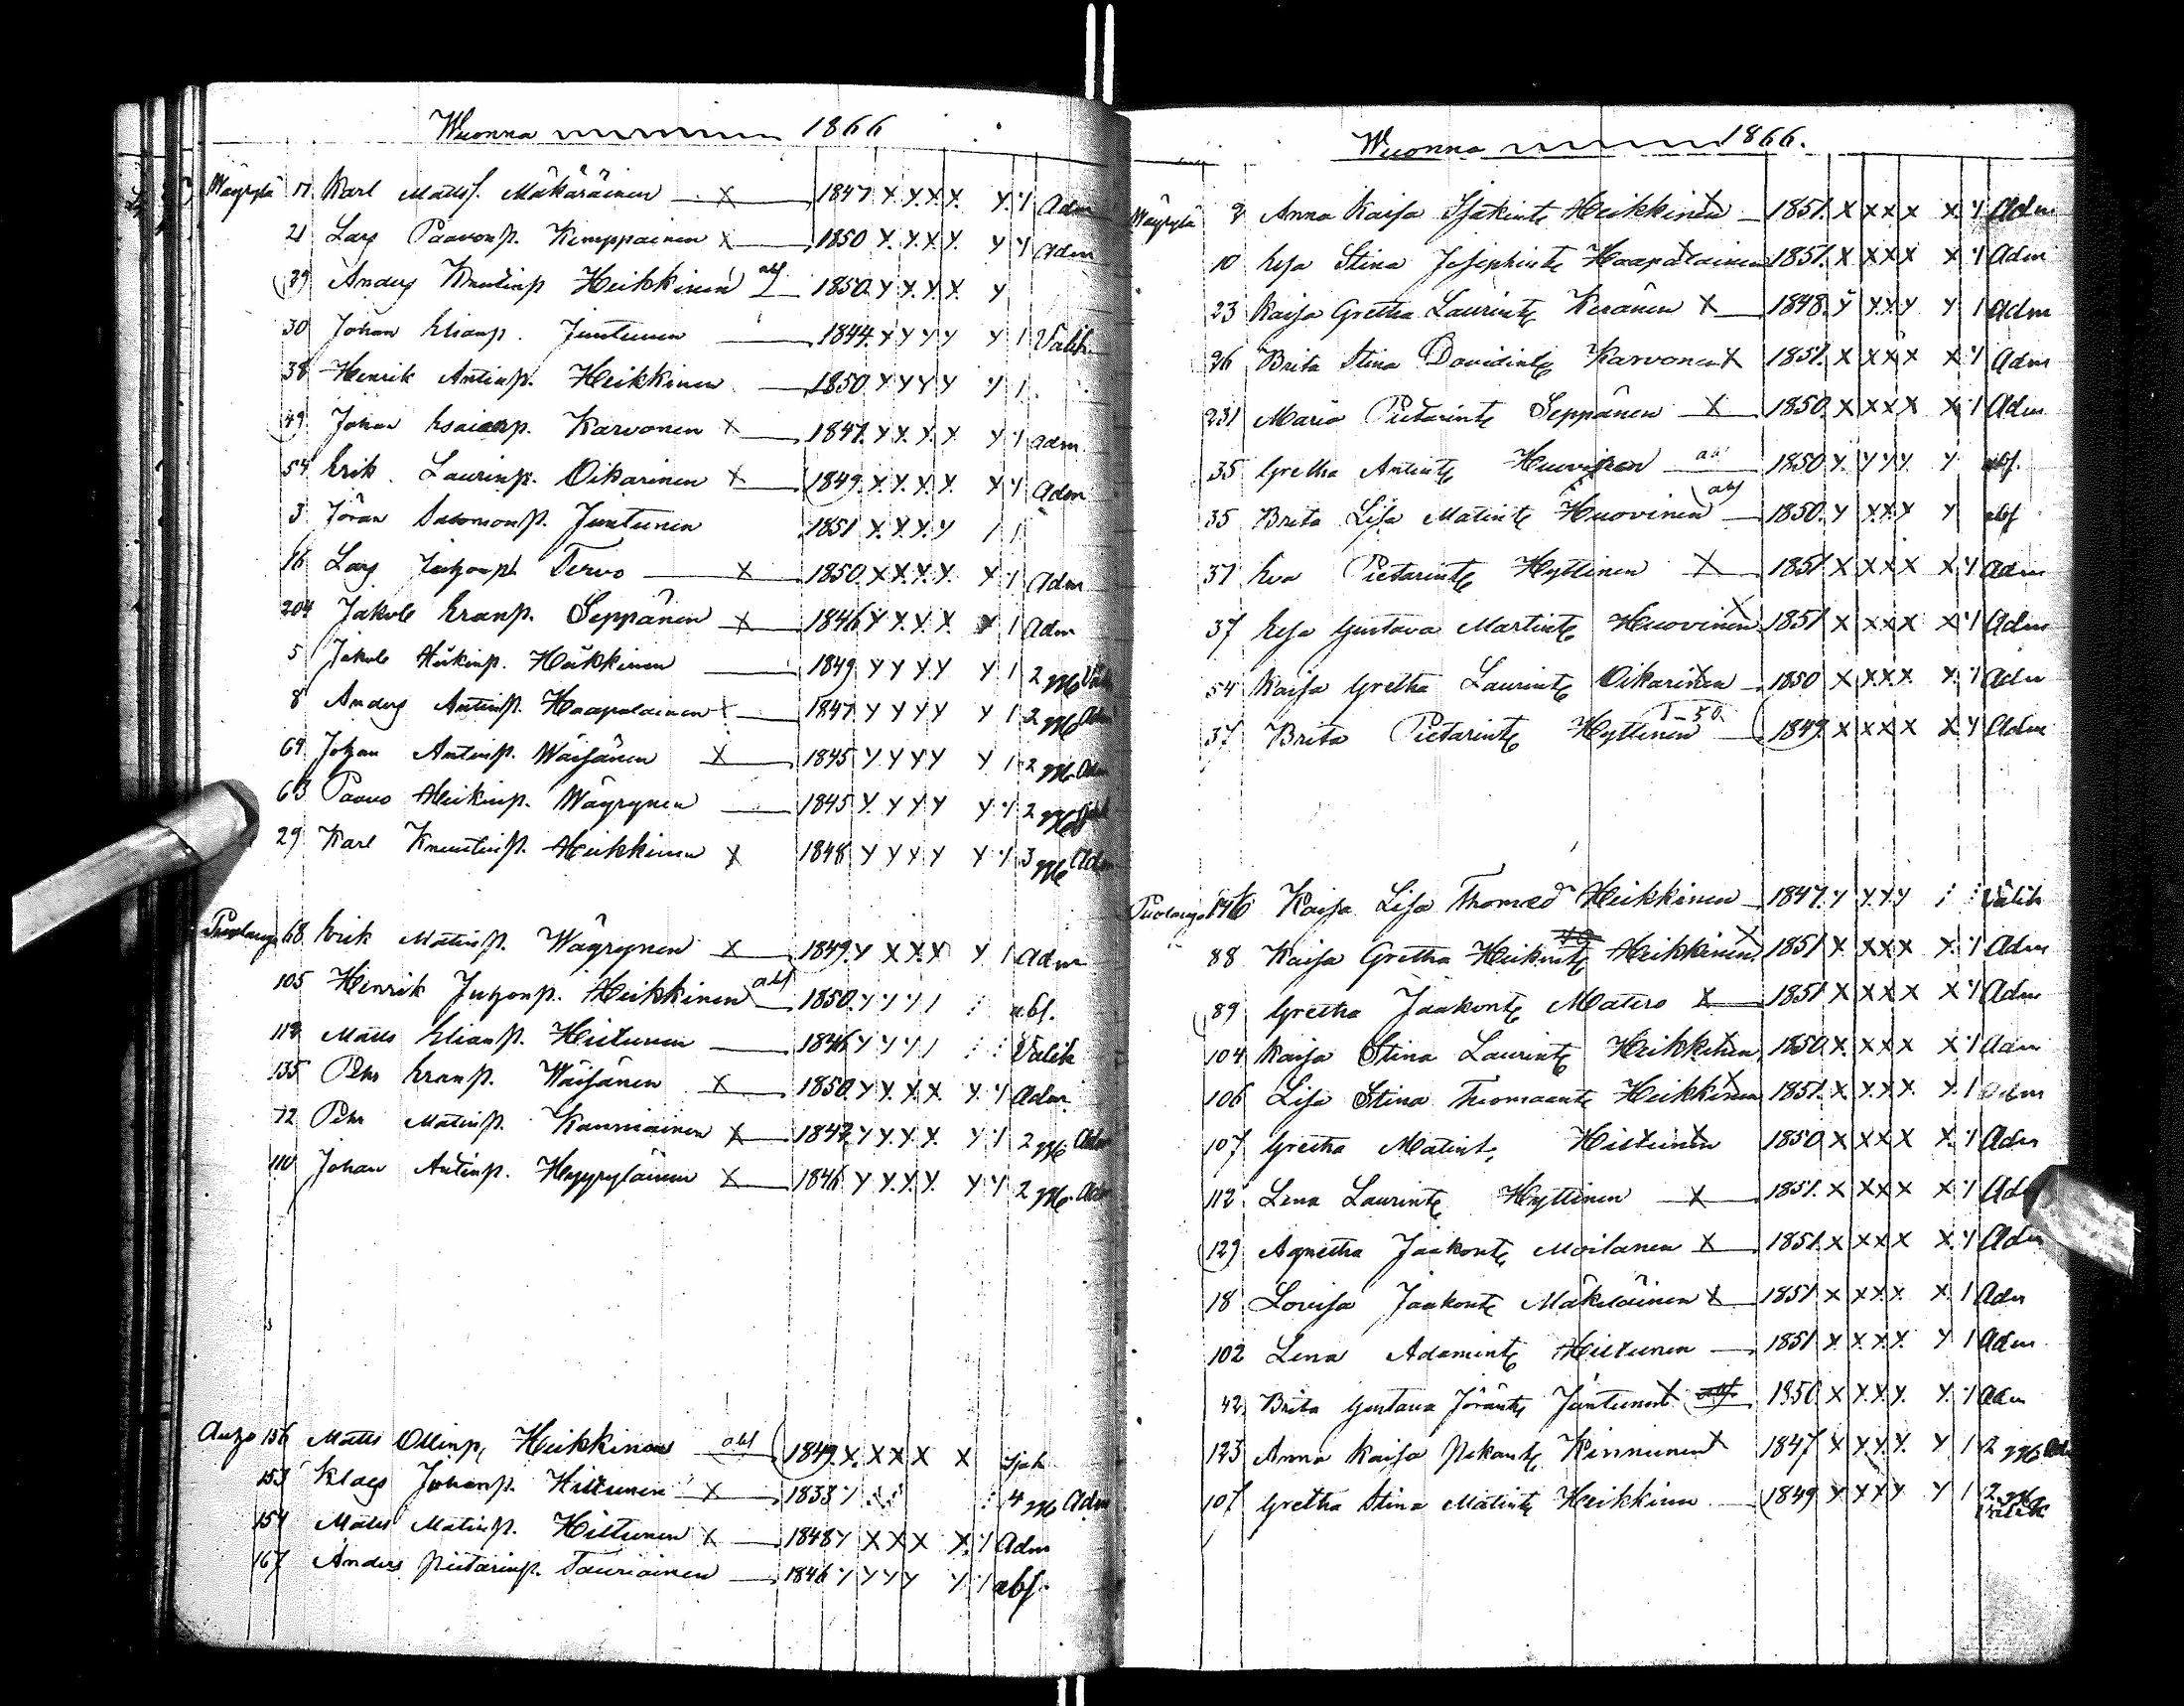 Wuonna 1866
Wäyrylä 17 Karl Mattsf. Mäkäräinen X 1847 X X X X X 1 Adm
21 Lars Paavonp. Kemppainen X 1850 Y X X X Y Y Adm
29 Anders Knuutinp Heikkinen abf 1850 Y X X X Y
30 Johan Elianp. Juntunen 1844 Y Y Y Y Y 1 Välih
38 Henrik Antinp. Heikkinen 1850 Y Y Y Y Y 1
49 Johan Esaianp. Karvonen X 1847 Y X X X Y 1 Adm
54 Erik Laurinp. Oikarinen X 1849 X X X X X Y Adm
3 Jöran Salomonp. Juntunen 1851 X X X Y 1 1
16 Lars Juhonp. Tervo X 1850 X X X X X 1 Adm
204 Jakob Eranp. Seppänen X 1846 Y Y X X X 1 Adm
5 Jakob Heikinp. Häkkinen 1849 Y Y Y Y Y 1 2
8 Anders Antinp. Haapalainen X 1847 Y Y Y Y Y 1 2 Adm
69 Johan Antinp. Wäisänen X 1845 Y Y Y Y Y 1 2 Adm
63 Paavo Heikinp. Wäyrynen 1845 Y Y Y Y Y 1 2
29 Karl Knuutinp. Heikkinen X 1848 Y Y Y Y Y Y 3 Adm
Puolanga 68 Erik Matinp. Wäyrynen X 1849 Y X X X Y 1 Adm
105 Henrik Juhonp. Heikkinen abf 1850 Y Y Y 1 abf.
112 Matts Elianp. Hiltunen 1846 Y Y Y 1 Välih
135 Pehr Eranp. Wäisänen X 1850 Y X X X Y Y Adm
72 Pehr Matinp. Kanniainen X Y Y X X Y 1 2 Adm
110 Johan Antinp. Hyyryläinen X 1846 Y Y X X Y Y 2 Adm
156 Matts Ollinp. Heikkinen abf 1849 X X X X X
153 Klas Johanp. Hiltunen X 1833 1 4 Adm
154 Matts Matinp. Hiltunen X 1848 Y X X X X 1 Adm
167 Anders Pietarinp. Tauriainen 1846 Y Y Y Y Y 1 abf.
Wuonna 1866.
Wäyrylä 2 Anna Kaisa Heikkinen X 1851 X X X X X Y Adm
10 Eefa Stina Josephint. Haapalainen X 1851 X X X X X Y Adm
23 Kaisa Gretha Laurint. Keränen X 1848 Y Y X Y Y 1 Adm
26 Brita Stina Davidint. Karvonen X 1851 X X X X X Y Adm
231 Maria Pietarint. Seppänen X 1850 X X X X X 1 Adm
35 Gretha Antint. Huovinen 1850 Y Y Y Y Y abf.
35 Brita Lisa Matint. Huovinen abf 1850 Y X X Y Y abf
37 Eva Pietarint. Hyttinen X 1851 X X X X X Y Adm
37 Eefa Gustava Martint. Huovinen X 1851 X X X X X Y Adm
54 Kaisa Gretha Laurint. Oikarinen X 1850 X X X X X Y Adm
37 Brita Pietarint. Hyttinen 1849 X X X X X Y Adm
Puolanga 146 Kaisa Lisa Heikkinen 1847 Y Y Y Y Välih
88 Kaisa Gretha Heikint. Heikkinen X 1851 X X X X X Y Adm
89 Gretha Jaakont. Matero X 1851 X X X X X Y Adm
104 Kaisa Stina Laurint. Heikkinen X 1850 X X X X X Y Adm
106 Lisa Stina Thomaant. Heikkinen X 1851 X Y X X Y 1 Adm
107 Gretha Matint. Hiltunen X 1850 X X X X X Y Adm
112 Lena Laurint. Hyttinen X 1851 X X X X X Y Ad
129 Agnetha Jaakont. Moilanen X 1851 X X X X X Y Adm
18 Lovisa Jaakont. Mäkeläinen X 1851 X X X X X 1 Adm
102 Lena Adamint. Hiltunen 1851 X X X X Y 1 Adm
42 Brita Gustava Jöränt. Juntunen X abf. 1850 X Y X Y Y Y Adm
123 Anna Kaisa Pekant. Kinnunen X 1847 X Y Y Y Y 1 2
107 Gretha Stina Matint. Heikkinen 1849 Y Y X Y Y 1 2